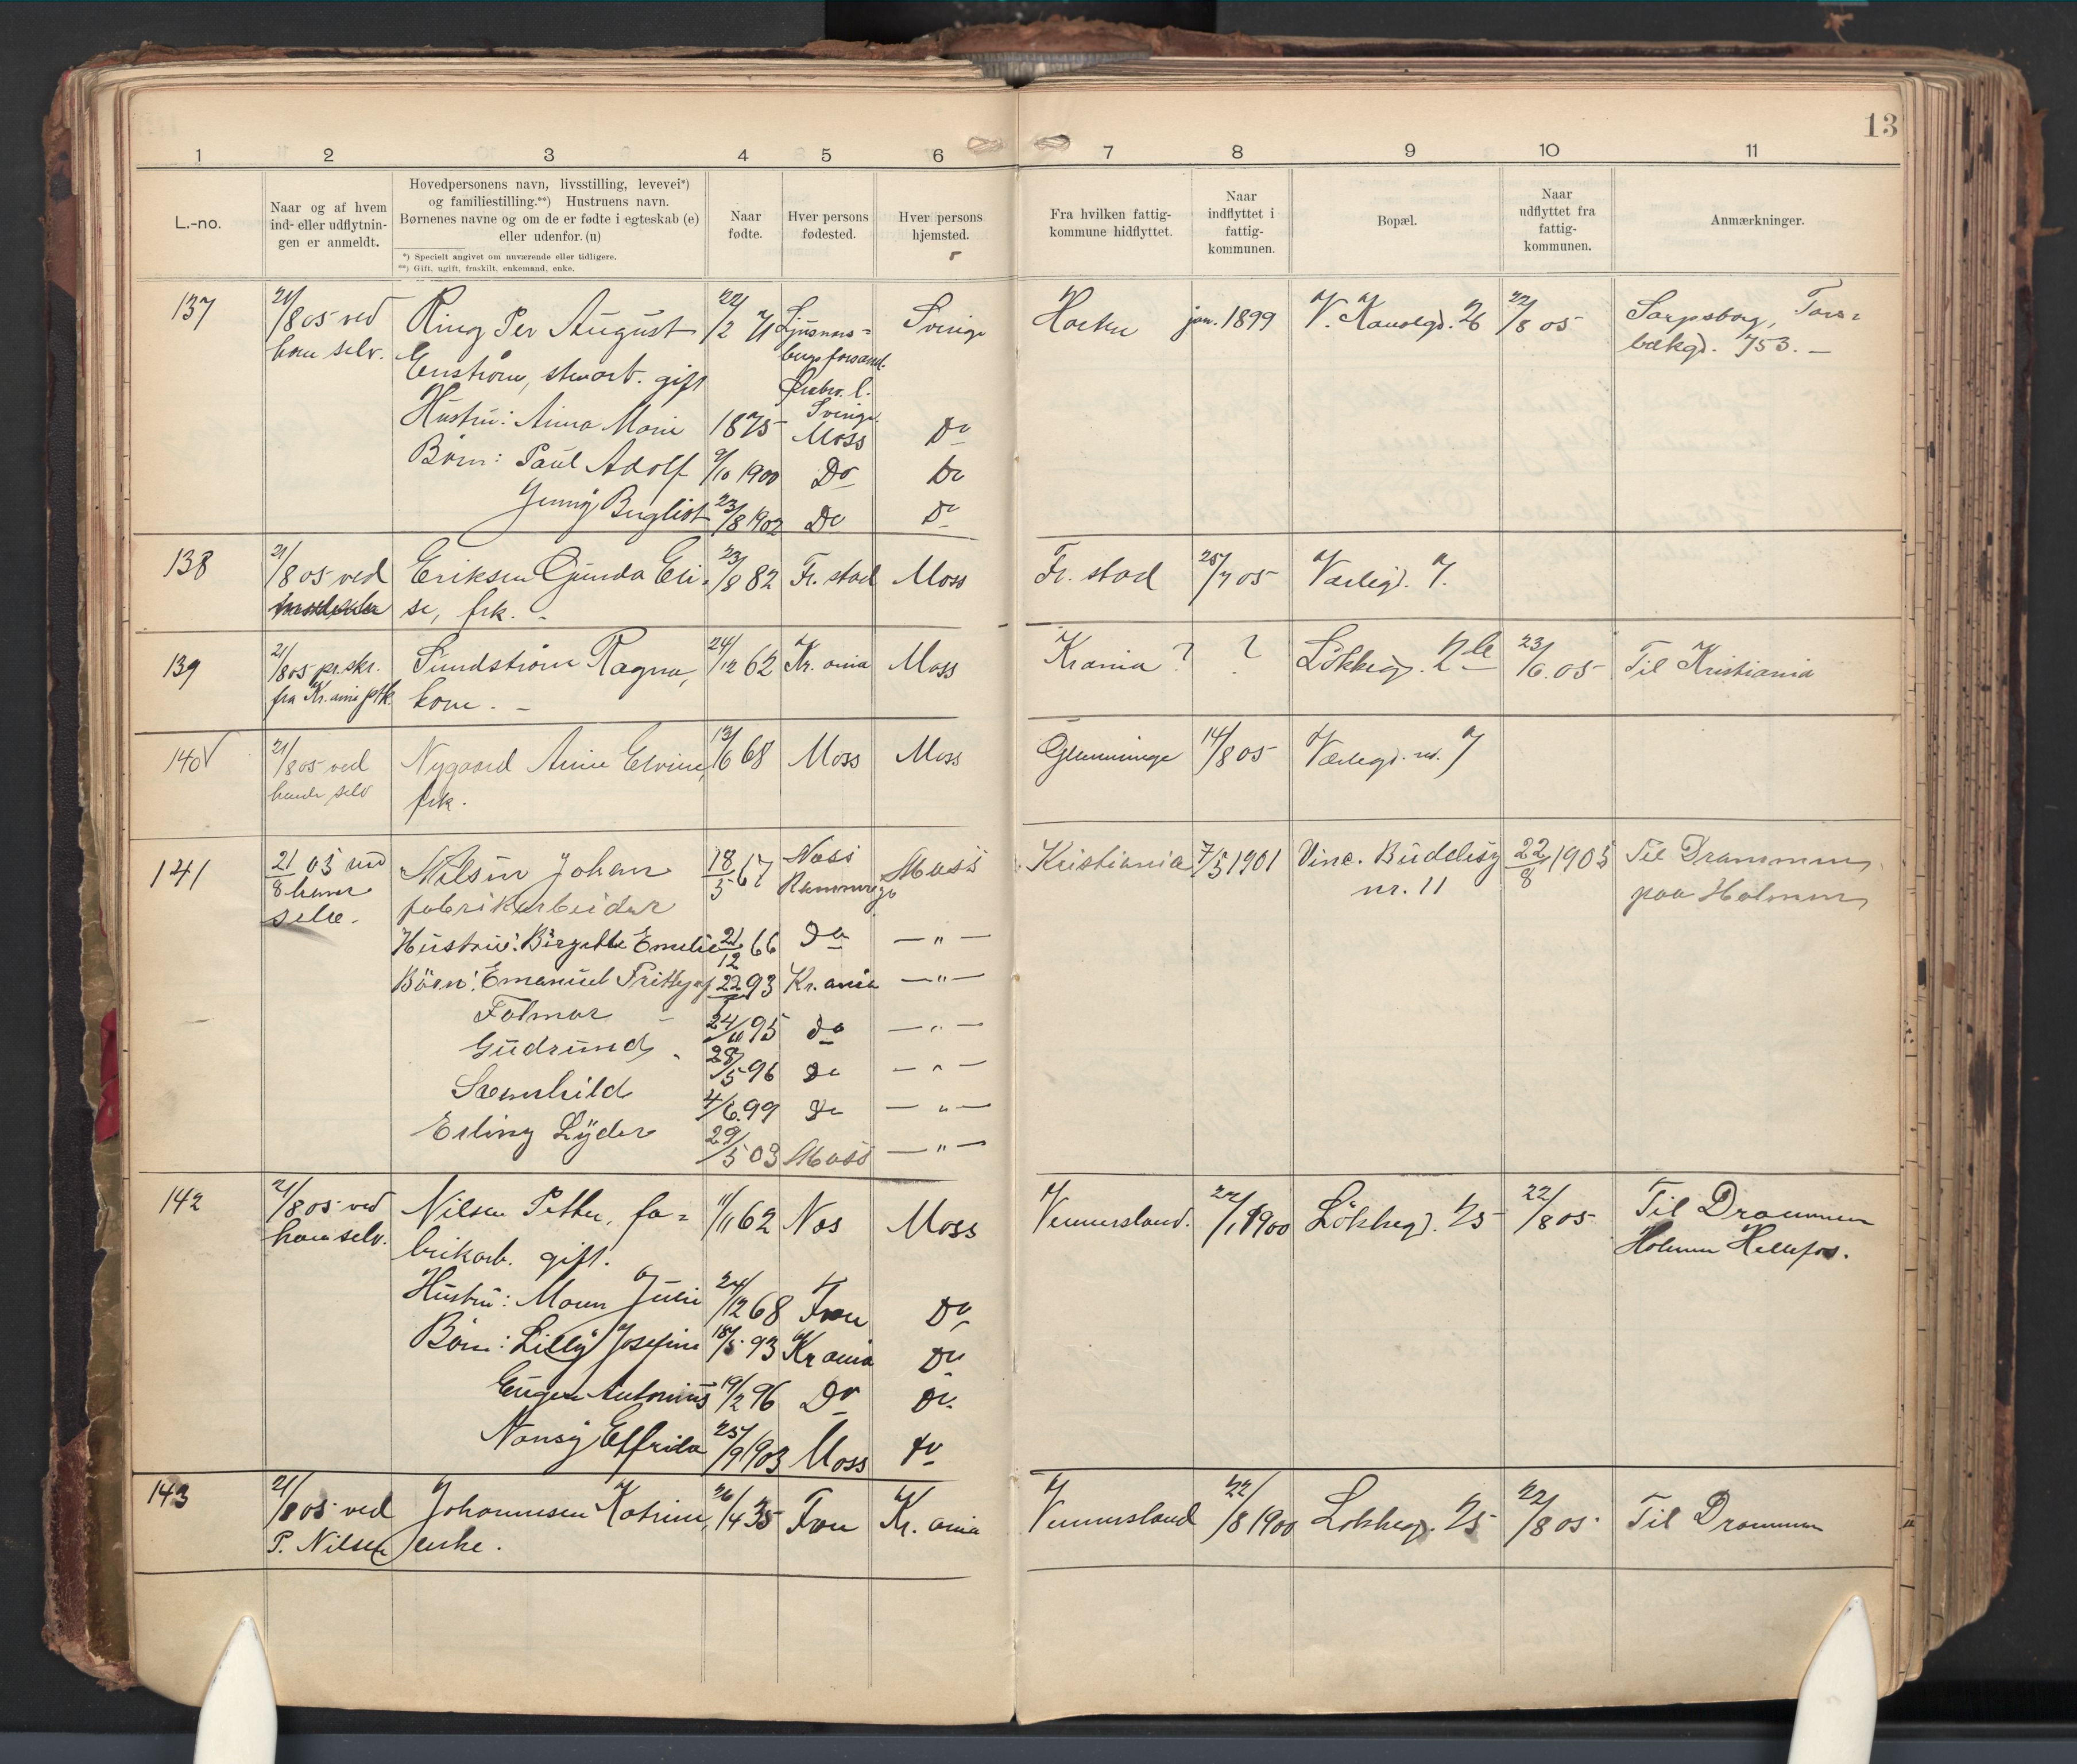 13
1 2 3 4 5 6 7 8 9 10 11
L.-no.
Naar og af hvem
ind- eller udflytnin-
gen er anmeldt.
Hovedpersonens navn, livsstilling, levevei*)
og familiestilling.**) Hustruens navn.
Børnenes navne og om de er fødte i egteskab (e)
eller udenfor. (u)
*) Specielt angivet om nuværende eller tidligere.
**) Gift, ugift, fraskilt, enkemand, enke.
Naar
fødte.
Hver persons
fødested.
Hver persons
hjemsted.
Fra hvilken fattig-
kommune hidflyttet.
Naar
indflyttet i
fattig-
kommunen.
Bopæl.
Naar
udflyttet fra
fattig-
kommunen.
Anmærkninger.
137 21/8 05 ved Ring Per August 22/2 71 Ljusnars- Sverige jan. 1899 V. Kanalgd. 26 22/8 05 Sarpsborg, Tars-
ham selv. bergs forsaml. bækgd. 753. —
Enström, gift Örebro l.
Sverige
Hustru: Anna Marie 1875 Moss Do
Börn: Paul Adolf 9/10 1900 Do Do
Jenny 23/8 1902 Do Do
138 21/8 05 ved Eriksen Gunda Eli- 23/8 82 Fr. stad Moss Fr. stad 25/7 05 Værlegd. 7.
se, frk. -
139 21/8 05 pr. skr. Sundström Ragna, 24/12 62 Kr. ania Moss Krania ? ? Lökkegd. 23/6 05 Til Kristiania
fra Kr. ania kone. -
140 21/8 05 ved Nygaard Anne Elvine, 13/6 68 Moss Moss Glemminge 14/8 05 Værlegd. nr. 7
hende selv frk.
141 21/8 05 ved Nilsen Johan 18/5 67 Næss Moss Kristiania 7/5 1901 Vinc. Buddesg 22/8 1905 Til Drammen
ham fabrikarbeider nr. 11 paa Holmen
selv.
Hustru: Birgitte Emelie 21/12 66 Do — " —
Börn: Emanuel Frithjof 93 Kr. ania — " —
Folmar - 95 do — " —
Gudrund 28/5 96 do — " —
4/6 99 do — " —
Erling Lyder 29/5 03 Moss — " —
142 21/8 05 ved Nilsen Petter, fa- 11/11 62 Nes Moss Vennersland. 1900 Lökkegd. 25 22/8 05 Til Drammen
ham selv. brikarb. gift. Holmen Hellefos.
Hustru: Julie 24/12 68 Do
Börn: Lilly Josefine 18/5 93 Krania Do
Eugen Antonius 19/2 96 Do Do
Nansy Elfrida 25/9 1903 Moss Do
143 21/8 05 ved Johannesen Katrine, 26/4 35 Kr. ania Vennersland 22/8 1900 Lökkegd. 25 22/8 05 Til Drammen
P. Nilsen enke.